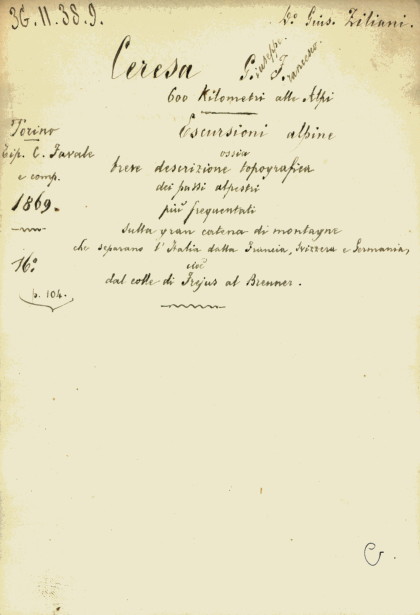 3G.11.38.9.
Do Gius. Ziliani.
Ceresa Giuseppe Francesco.
600 Kilometri alle Alpi
Escursioni alpine
ossia
breve descrizione topografica
dei passi alpestri
più frequentati
sulla gran catena di montagne
che separano l'Italia dalla Francia, Svizzera e Germania,
cioè
dal colle di Frejus al Brenner.
Torino
Tip. C. Favale
e comp.
1869.
16°
p. 104.
G.